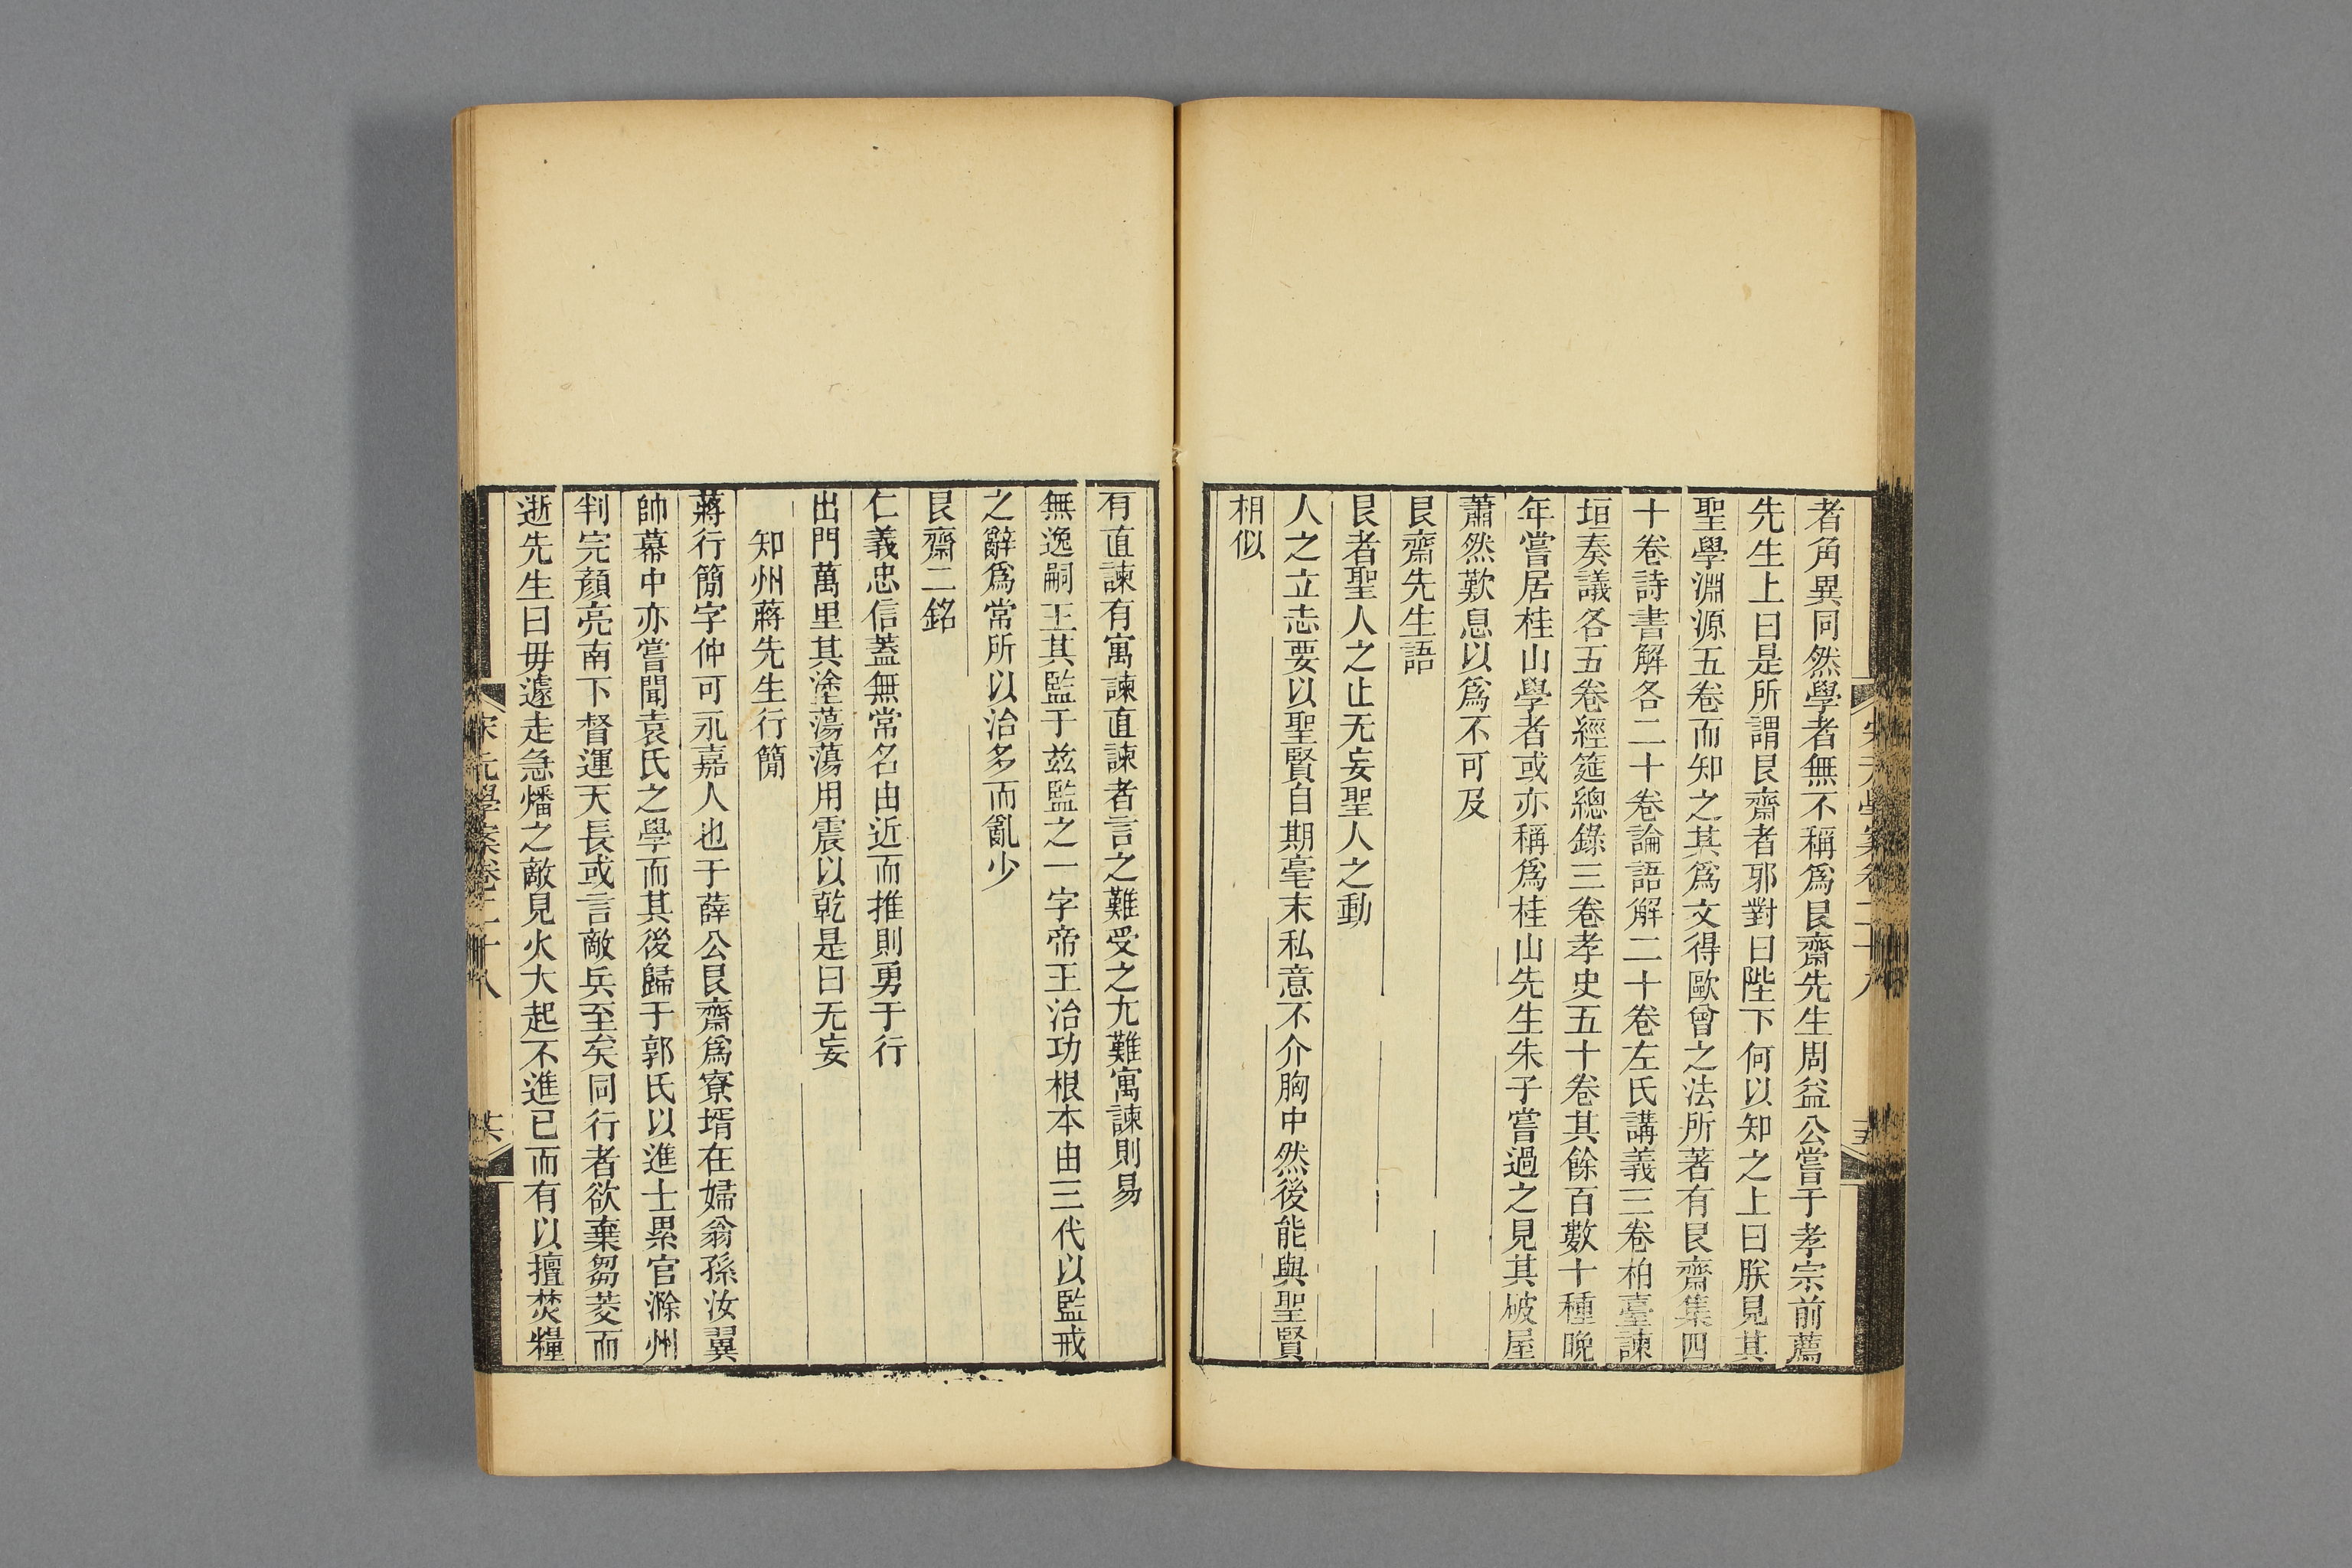 者角異同然學者無不稱爲艮齋先生周益公嘗于孝宗前薦
先生上曰是所謂艮齋者邪對曰陛下何以知之上曰朕見其
聖學淵源五卷而知之其爲文得歐曾之法所著有艮齋集四
十卷詩書解各二十卷論語解二十卷左氏講義三卷柏臺諫
垣奏議各五卷經筵總錄三卷孝史五十卷其餘百數十種晚
年嘗居桂山學者或亦稱爲桂山先生朱子嘗過之見其破屋
蕭然歎息以爲不可及
艮齋先生語
艮者聖人之止无妄聖人之動
人之立志要以聖賢自期毫末私意不介胸中然後能與聖賢
相似
有直諫有寓諫直諫者言之難受之尢難寓諫則易
無逸嗣王其監于兹監之一字帝王治功根本由三代以監戒
之辭爲常所以治多而亂少
艮齋二銘
仁義忠信蓋無常名由近而推則勇于行
出門萬里其塗蕩蕩用震以乾是曰无妄
知州蔣先生行簡
蔣行簡字仲可永嘉人也于薛公艮齋爲寮壻在婦翁孫汝翼
帥幕中亦嘗聞袁氏之學而其後歸于郭氏以進士累官滁州
判完顏亮南下督運天長或言敵兵至矣同行者欲棄芻茭而
逝先生曰毋遽走急燔之敵見火大起不進已而有以擅焚糧
宋元學案卷二十八